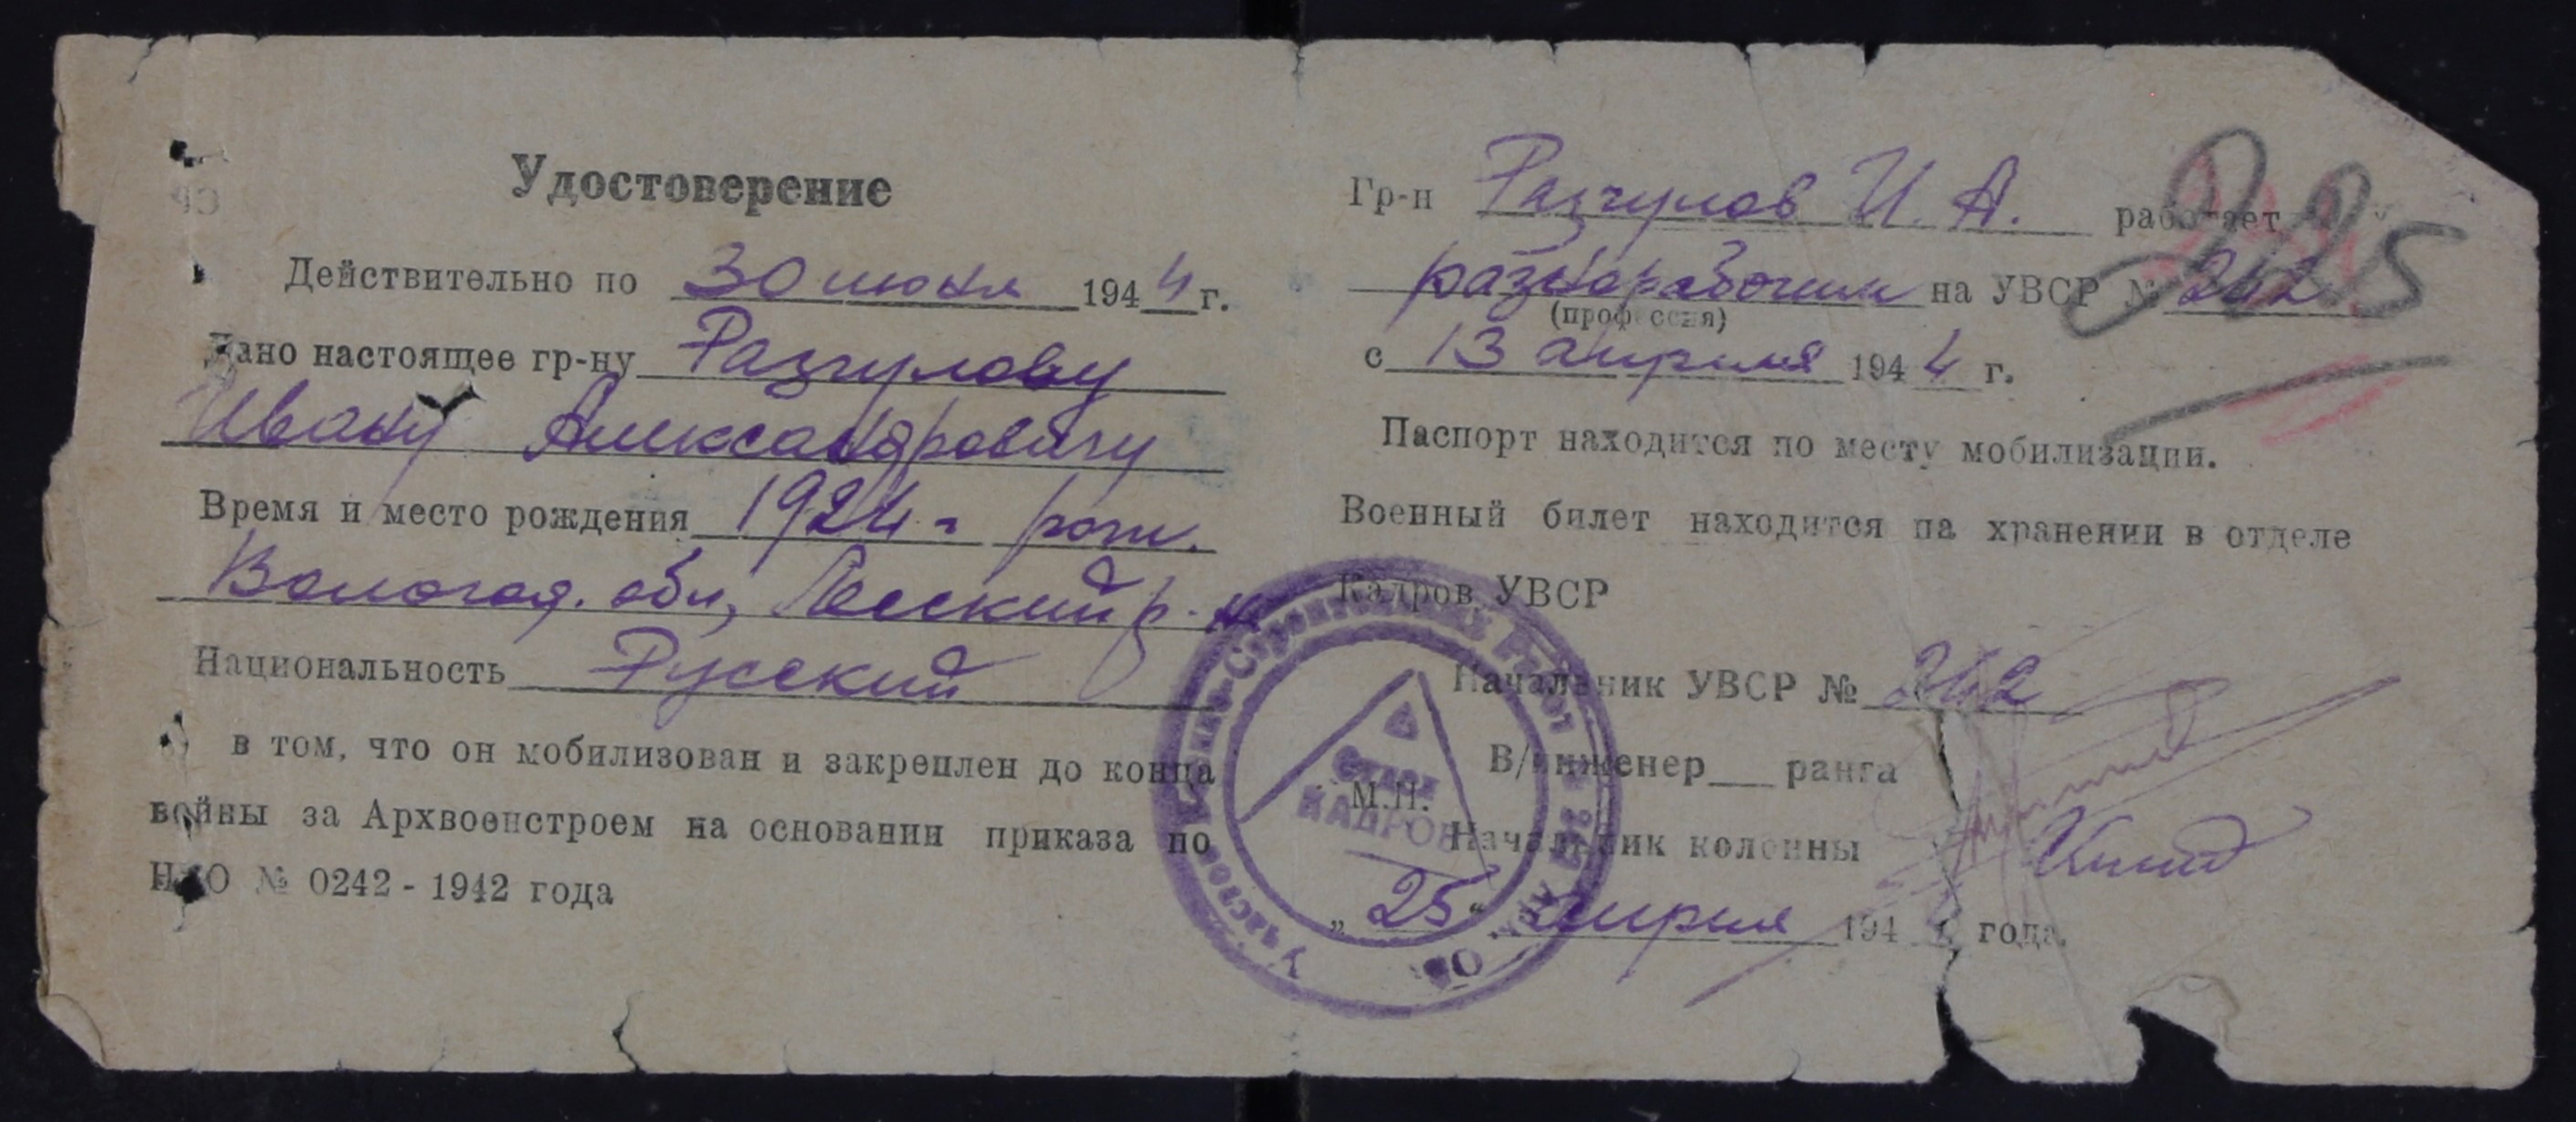 Удостоверение
Действительно по 30 июня 1944 г.
Дано настоящее гр-ну Разгулову
Ивану Александровичу
Время и место рождения 1924 г. рож.
Вологод. обл, Лесский р-н
Национальность Русский
в том, что он мобилизован и закреплен до конца
войны за Архвоенстроем на основании приказа по
НКО № 0242 - 1942 года
225
Гр-н Разгулов И. А. работает
разнорабочим на УВСР № 242
(профессия)
с 13 апреля 1944 г.
Паспорт находится по месту мобилизации.
Военный билет находится на хранении в отделе
Кадров УВСР
Начальник УВСР № 242
В/инженер ранга
М.П.
Начальник колонны
„ 25 “ апреля 194 года.
Участок Военно-Строительных Работ
Отдел
КАДРОВ